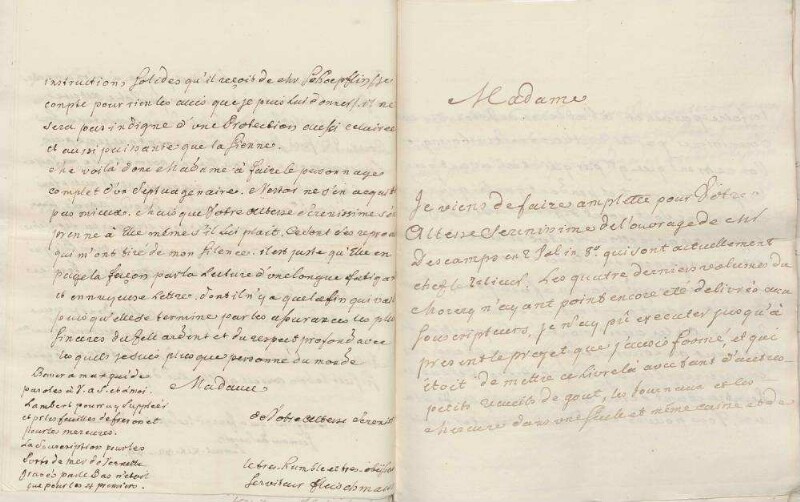 instructions solides qu'il reçoit de Mr Schoepflin, je
compte pour rien les avis que je puis lui donner, il ne
sera pas indigne d'une Protection aussi eclairée
et aussi puissante que la sienne.
Me voilà donc Madame à faire le personnage
complet d'un Septuagenaire. Nestor ne s'en acquit
pas mieux. Mais que Votre Altesse Serenissime s'en
prenne à Elle même s'il lui plait. Ce sont des
qui m'ont tiré de mon silence. il est juste qu'Elle en
paye la façon par la lecture d'une longue fatigante
et ennuyeuse lettre, dont il n'y a que la fin qui vaille
puisqu'elle se termine par les assurances les plus
sinceres du zele ardent et du respect profond avec
lesquels je suis plus que personne du monde
Madame
de Votre Altesse Serenis
le tres humble et tres obeis
serviteur Fleischman
paroles à V.A.S. et à moi
Lambert pourra y suppléer
et p. les feuilles de freron et
pour les mercures.
La souscription pour les
Ports de mer de Vernette
que pour les 4 premiers.
Madame
Je viens de faire amplette pour Votre
Altesse Serenissime de l'ouvrage de Mr
Descamps en 2 Vol. in 8°. qui vont actuellement
chez le relieur. Les quatre derniers volumes du
n'ayant point encore eté delivrés aux
souscripteurs, je n'ay pû executer jusqu'à
present le projet que j'avois formé, et qui
étoit de mettre ce livre là avec tant d'autres
petits recueils de gout, les journaux et les
Mercures dans une seule et même caisse et de